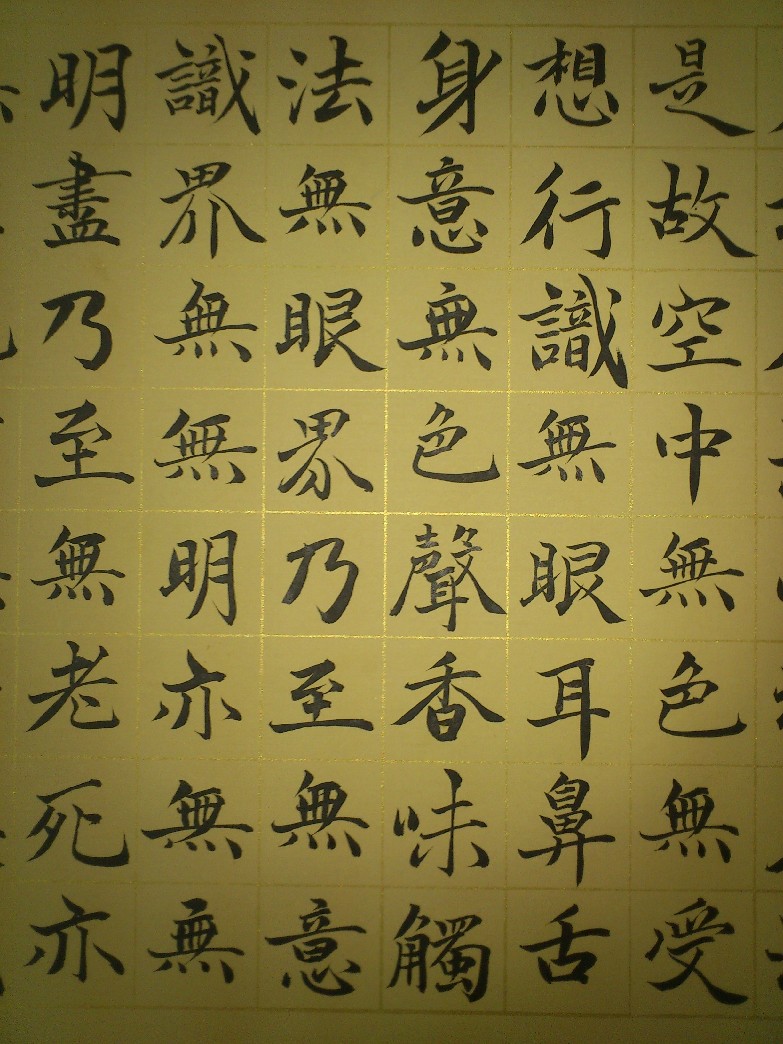 是故空中無色無受
想行識無眼耳鼻舌
身意無色聲香味觸
法無眼界乃至無意
識界無無明亦無無
明盡乃至無老死亦